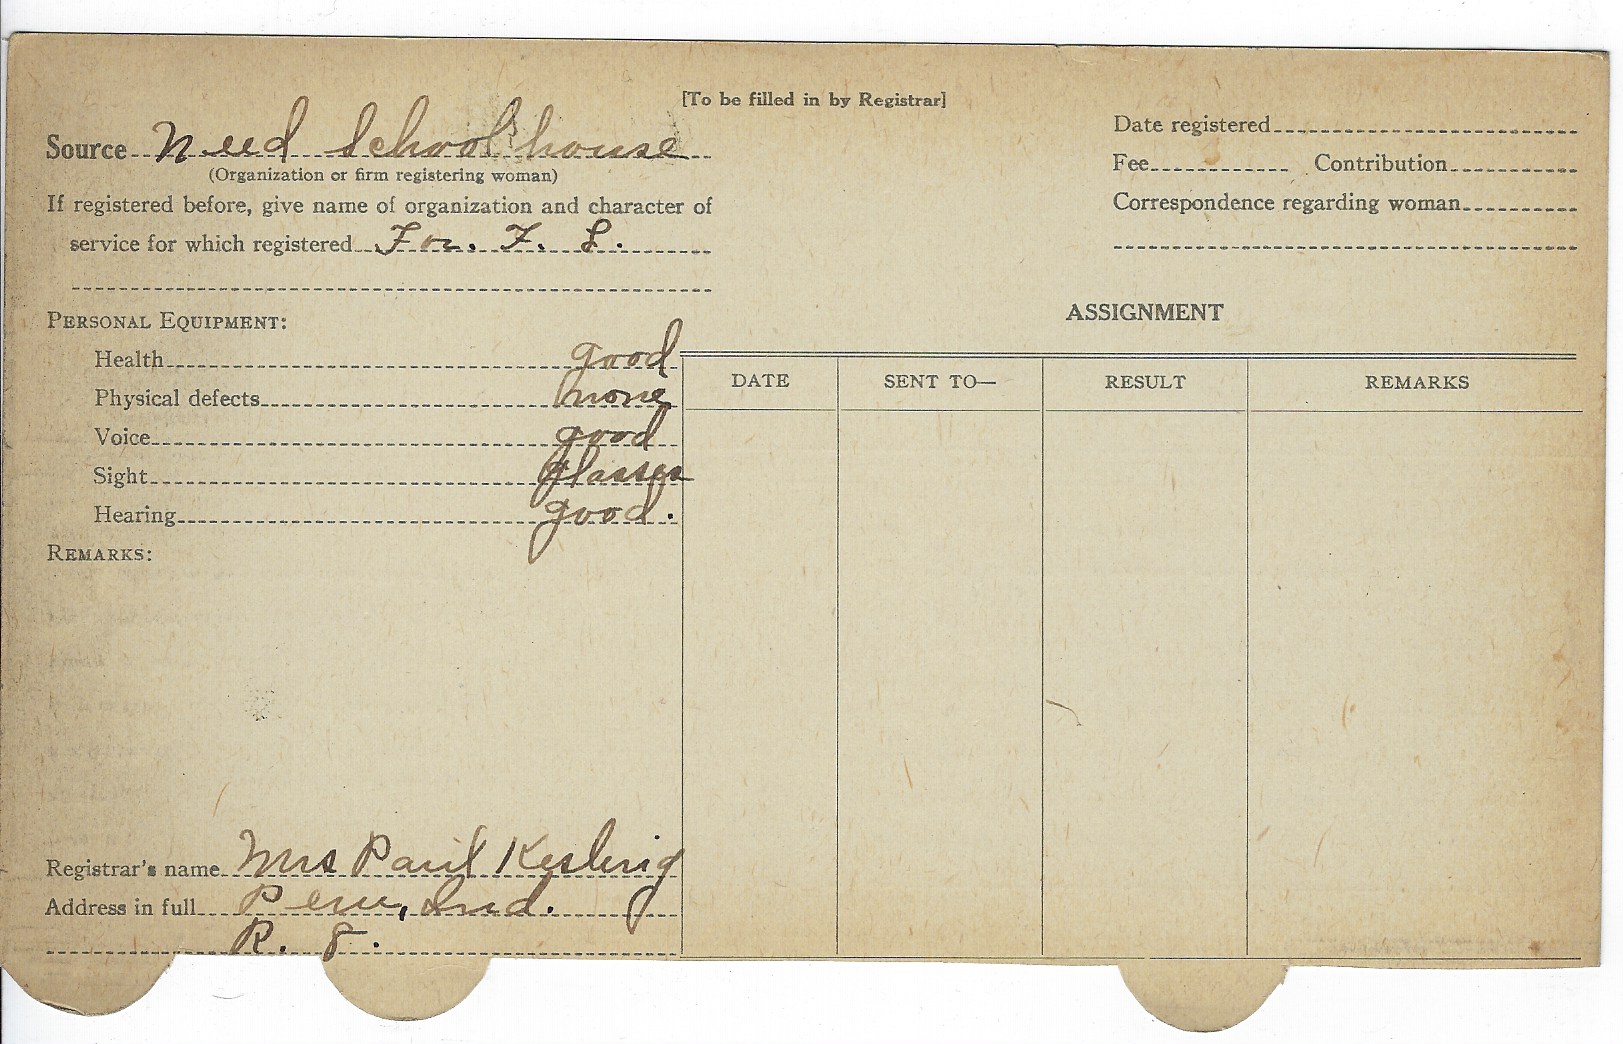 [To be filled in by Registrar]
Source Need School house
(Organization or firm registering woman)
If registered before, give name of organization and character of
service for which registered For. F. L.
Date registered
Fee Contribution
Correspondence regarding woman
PERSONAL EQUIPMENT:
Health good
Physical defects none
Voice good
Sight glasses
Hearing good.
REMARKS:
ASSIGNMENT
DATE SENT TO— RESULT REMARKS
Registrar's name Mrs Paul Kesling
Address in full Peru, Ind.
R. 8.